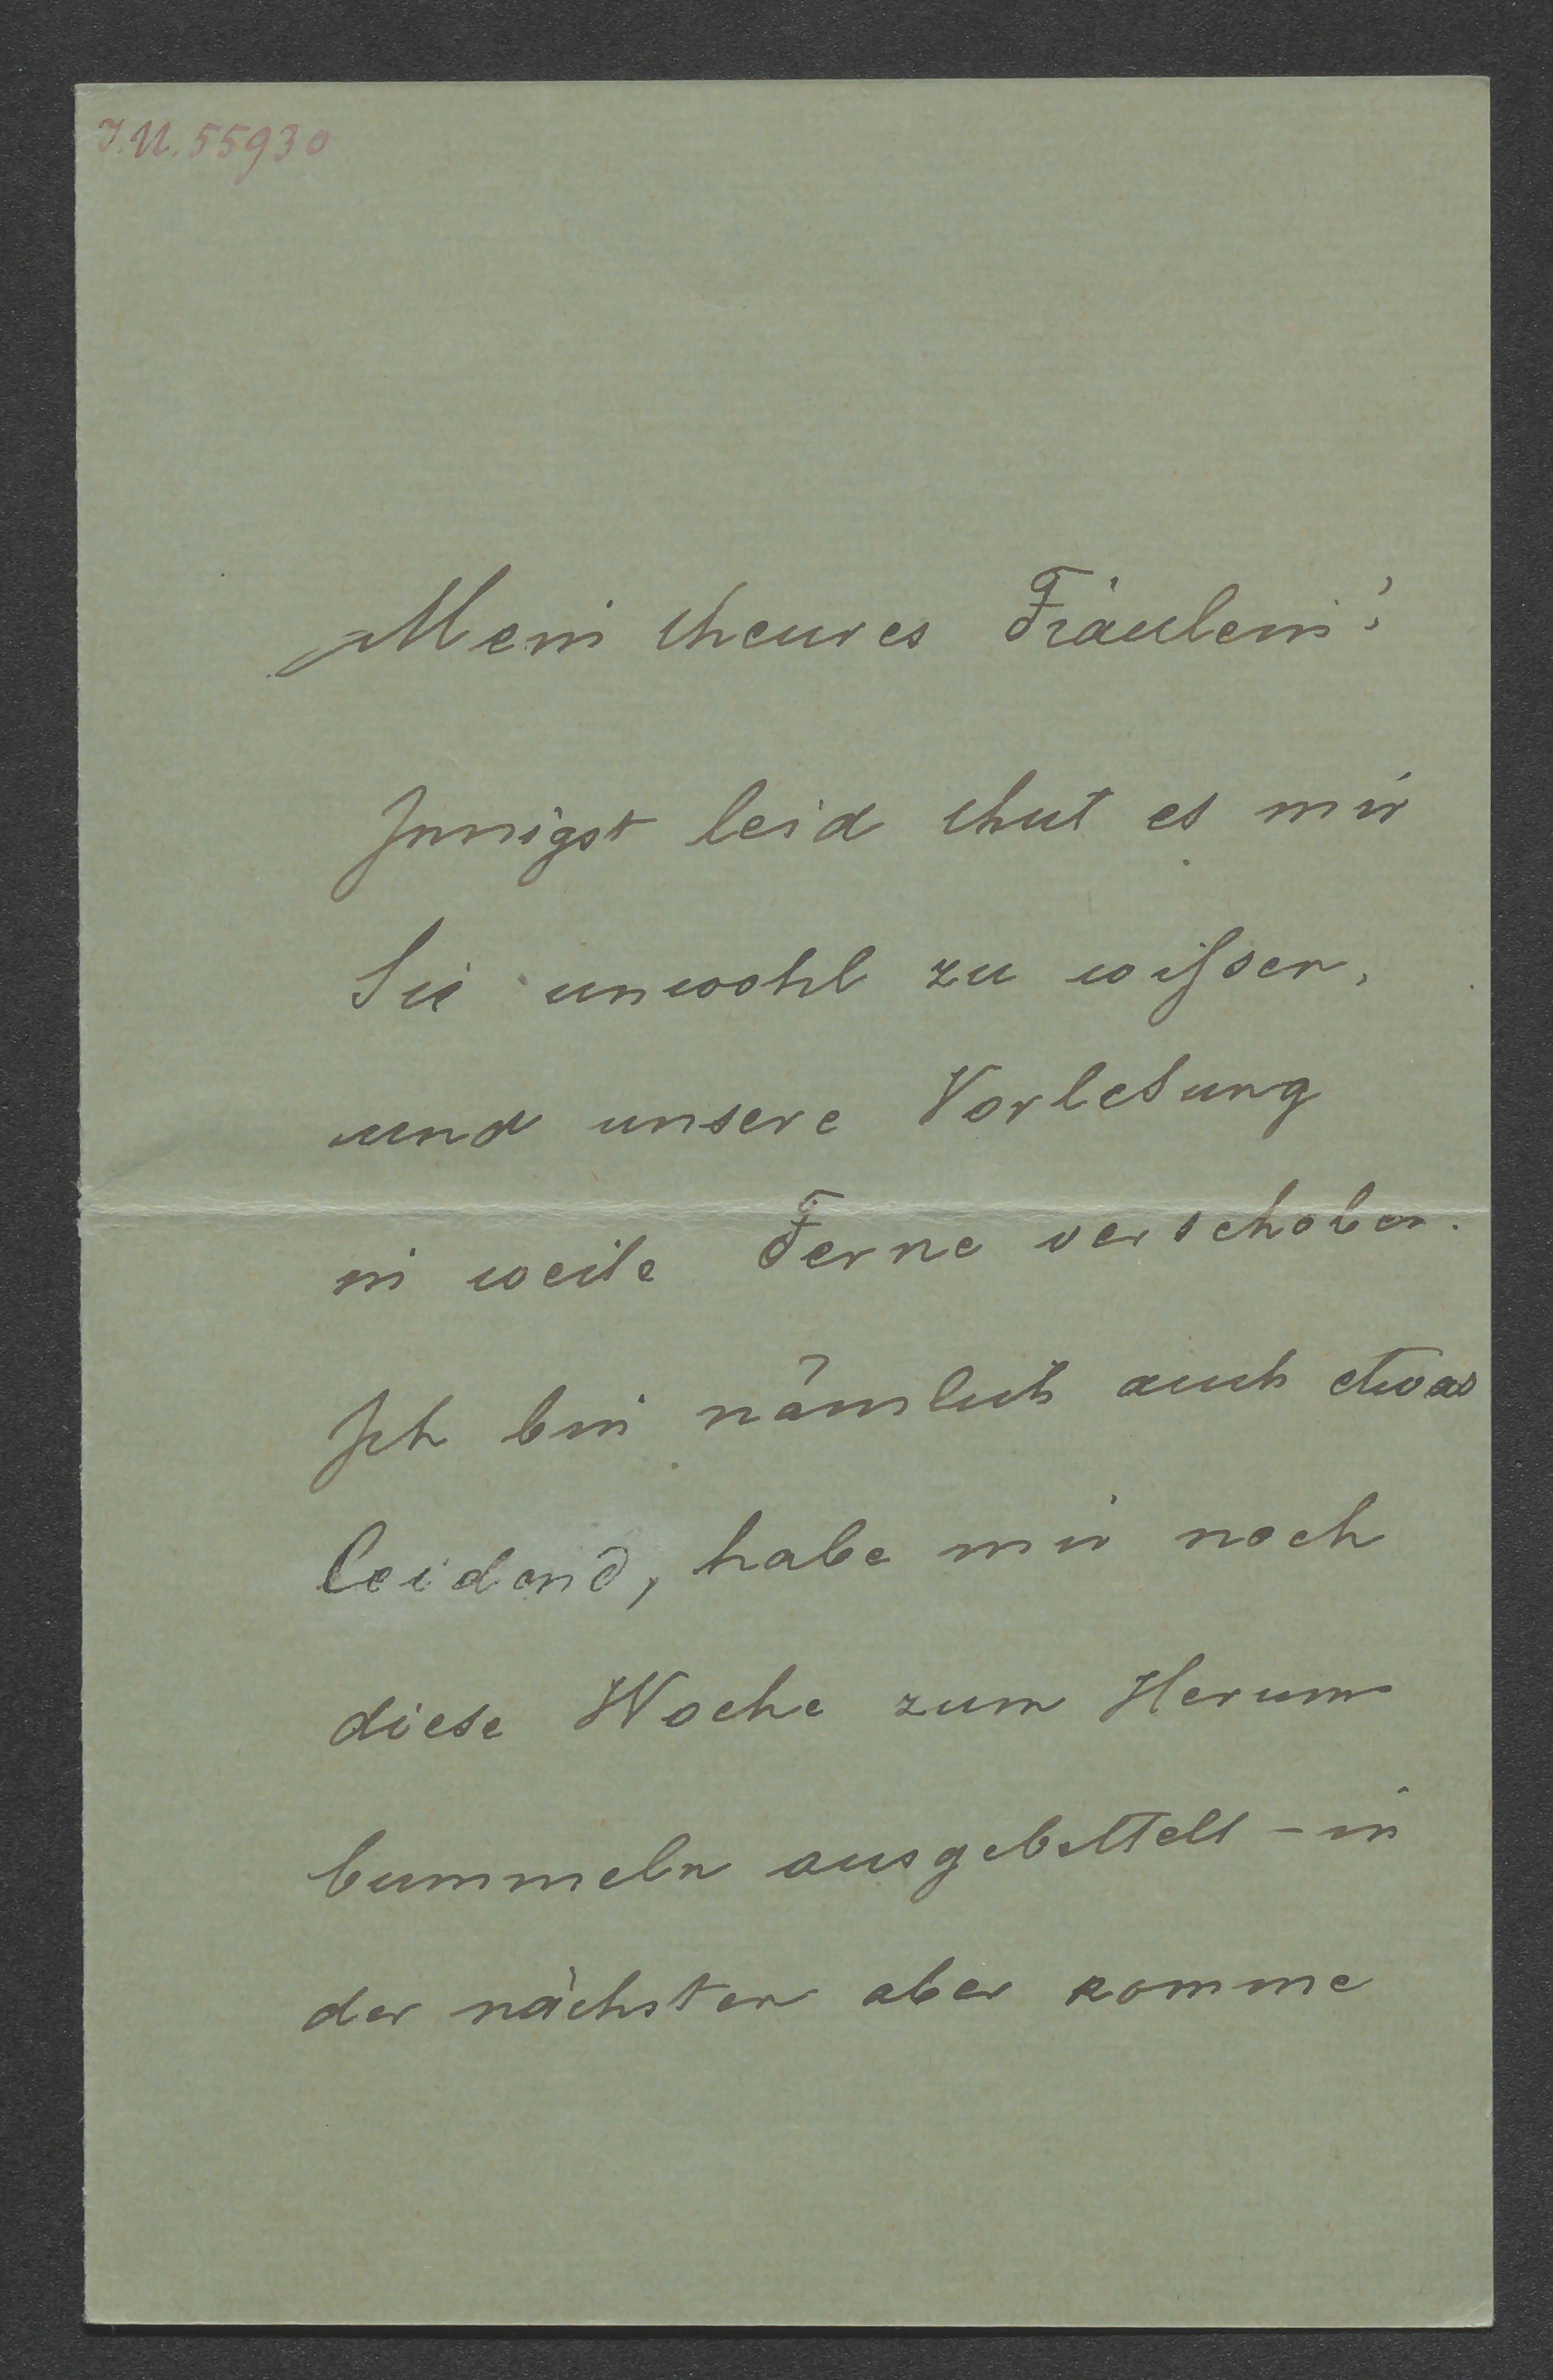 J.N. 55930
Mein theures Fräulein!
Innigst leid thut es mir
Sie unwohl zu wißsen,
und unsere Vorlesung
in weite Ferne verschoben.
Ich bin nämlich auch etwas
leidend, habe mir noch
diese Woche zum Herum
bummeln ausgebettelt – in
der nächsten aber komme